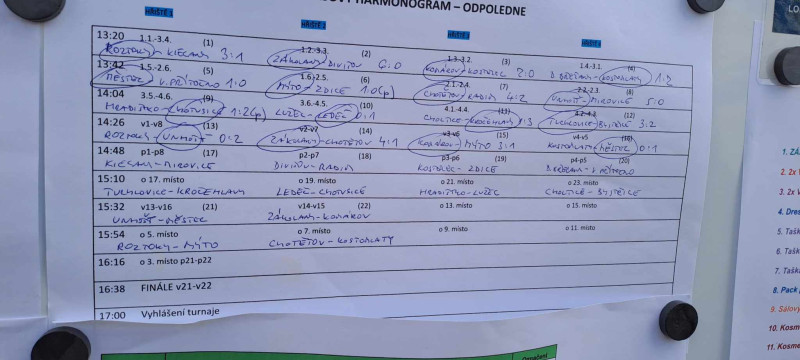 HARMONOGRAM – ODPOLEDNE
HŘIŠTĚ 1 HŘIŠTĚ 2
13:20 1.1.-3.4. (1) 1.2.-3.3. (2) 1.3.-3.2. (3) 1.4.-3.1. (4)
ROZTOKY - KIEČANY 3:1 ZÁKOLANY - DIVIŠOV 6:0 KONÁROV - KOSTELEC 2:0 D.BŘEŽANY - KOSTOMLATY 1:2
13:42 1.5.-2.6. (5) 1.6.-2.5. (6) 2.1.-2.4. (7) 2.2.-2.3. (8)
MĚSTEC - V.PŘÍTOČNO 1:0 MÝTO - ZDICE 1:0(p) CHOTĚTOV - RADIM 4:2 UNHOŠŤ - MIROVICE 5:0
14:04 3.5.-4.6. (9) 3.6.-4.5. (10) 4.1.-4.4. 4.2.-4.3. (12)
HRADIŠTKO - CHOTUSICE 1:2(p) LUŽEC - LEDEČ 0:1 CHOLTICE - KROČEHLAVY 1:3 TUCHLOVICE - BYSTŘICE 3:2
14:26 v1-v8 (13) v2-v7 (14) v3-v6 (15) v4-v5 (16)
ROZTOKY - UNHOŠŤ 0:2 ZÁKOLANY - CHOTĚTOV 4:1 KONÁROV - MÝTO 3:1 KOSTOMLATY - MĚSTEC 0:1
14:48 p1-p8 (17) p2-p7 (18) p3-p6 (19) p4-p5 (20)
KIEČANY - MIROVICE DIVIŠOV - RADIM KOSTELEC - ZDICE D.BŘEŽANY - V.PŘÍTOČNO
15:10 o 17. místo o 19. místo o 21. místo o 23. místo
TUCHLOVICE - KROČEHLAVY LEDEČ - CHOTUSICE HRADIŠTKO - LUŽEC CHOLTICE - BYSTŘICE
15:32 v13-v16 (21) v14-v15 (22) o 13. místo o 15. místo
UNHOŠŤ - MĚSTEC ZÁKOLANY - KONÁROV
15:54 o 5. místo o 7. místo o 9. místo o 11. místo
ROZTOKY - MÝTO CHOTĚTOV - KOSTOMLATY
16:16 o 3. místo p21-p22
16:38 FINÁLE v21-v22
17:00 Vyhlášení turnaje
LO
1. ZÁ
2. 2x
3. 2x V
4. Dres
5. Tašk
6. Tašk
7. Tašk
8. Pack
9. Sálový
10. Kosm
11. Kosme